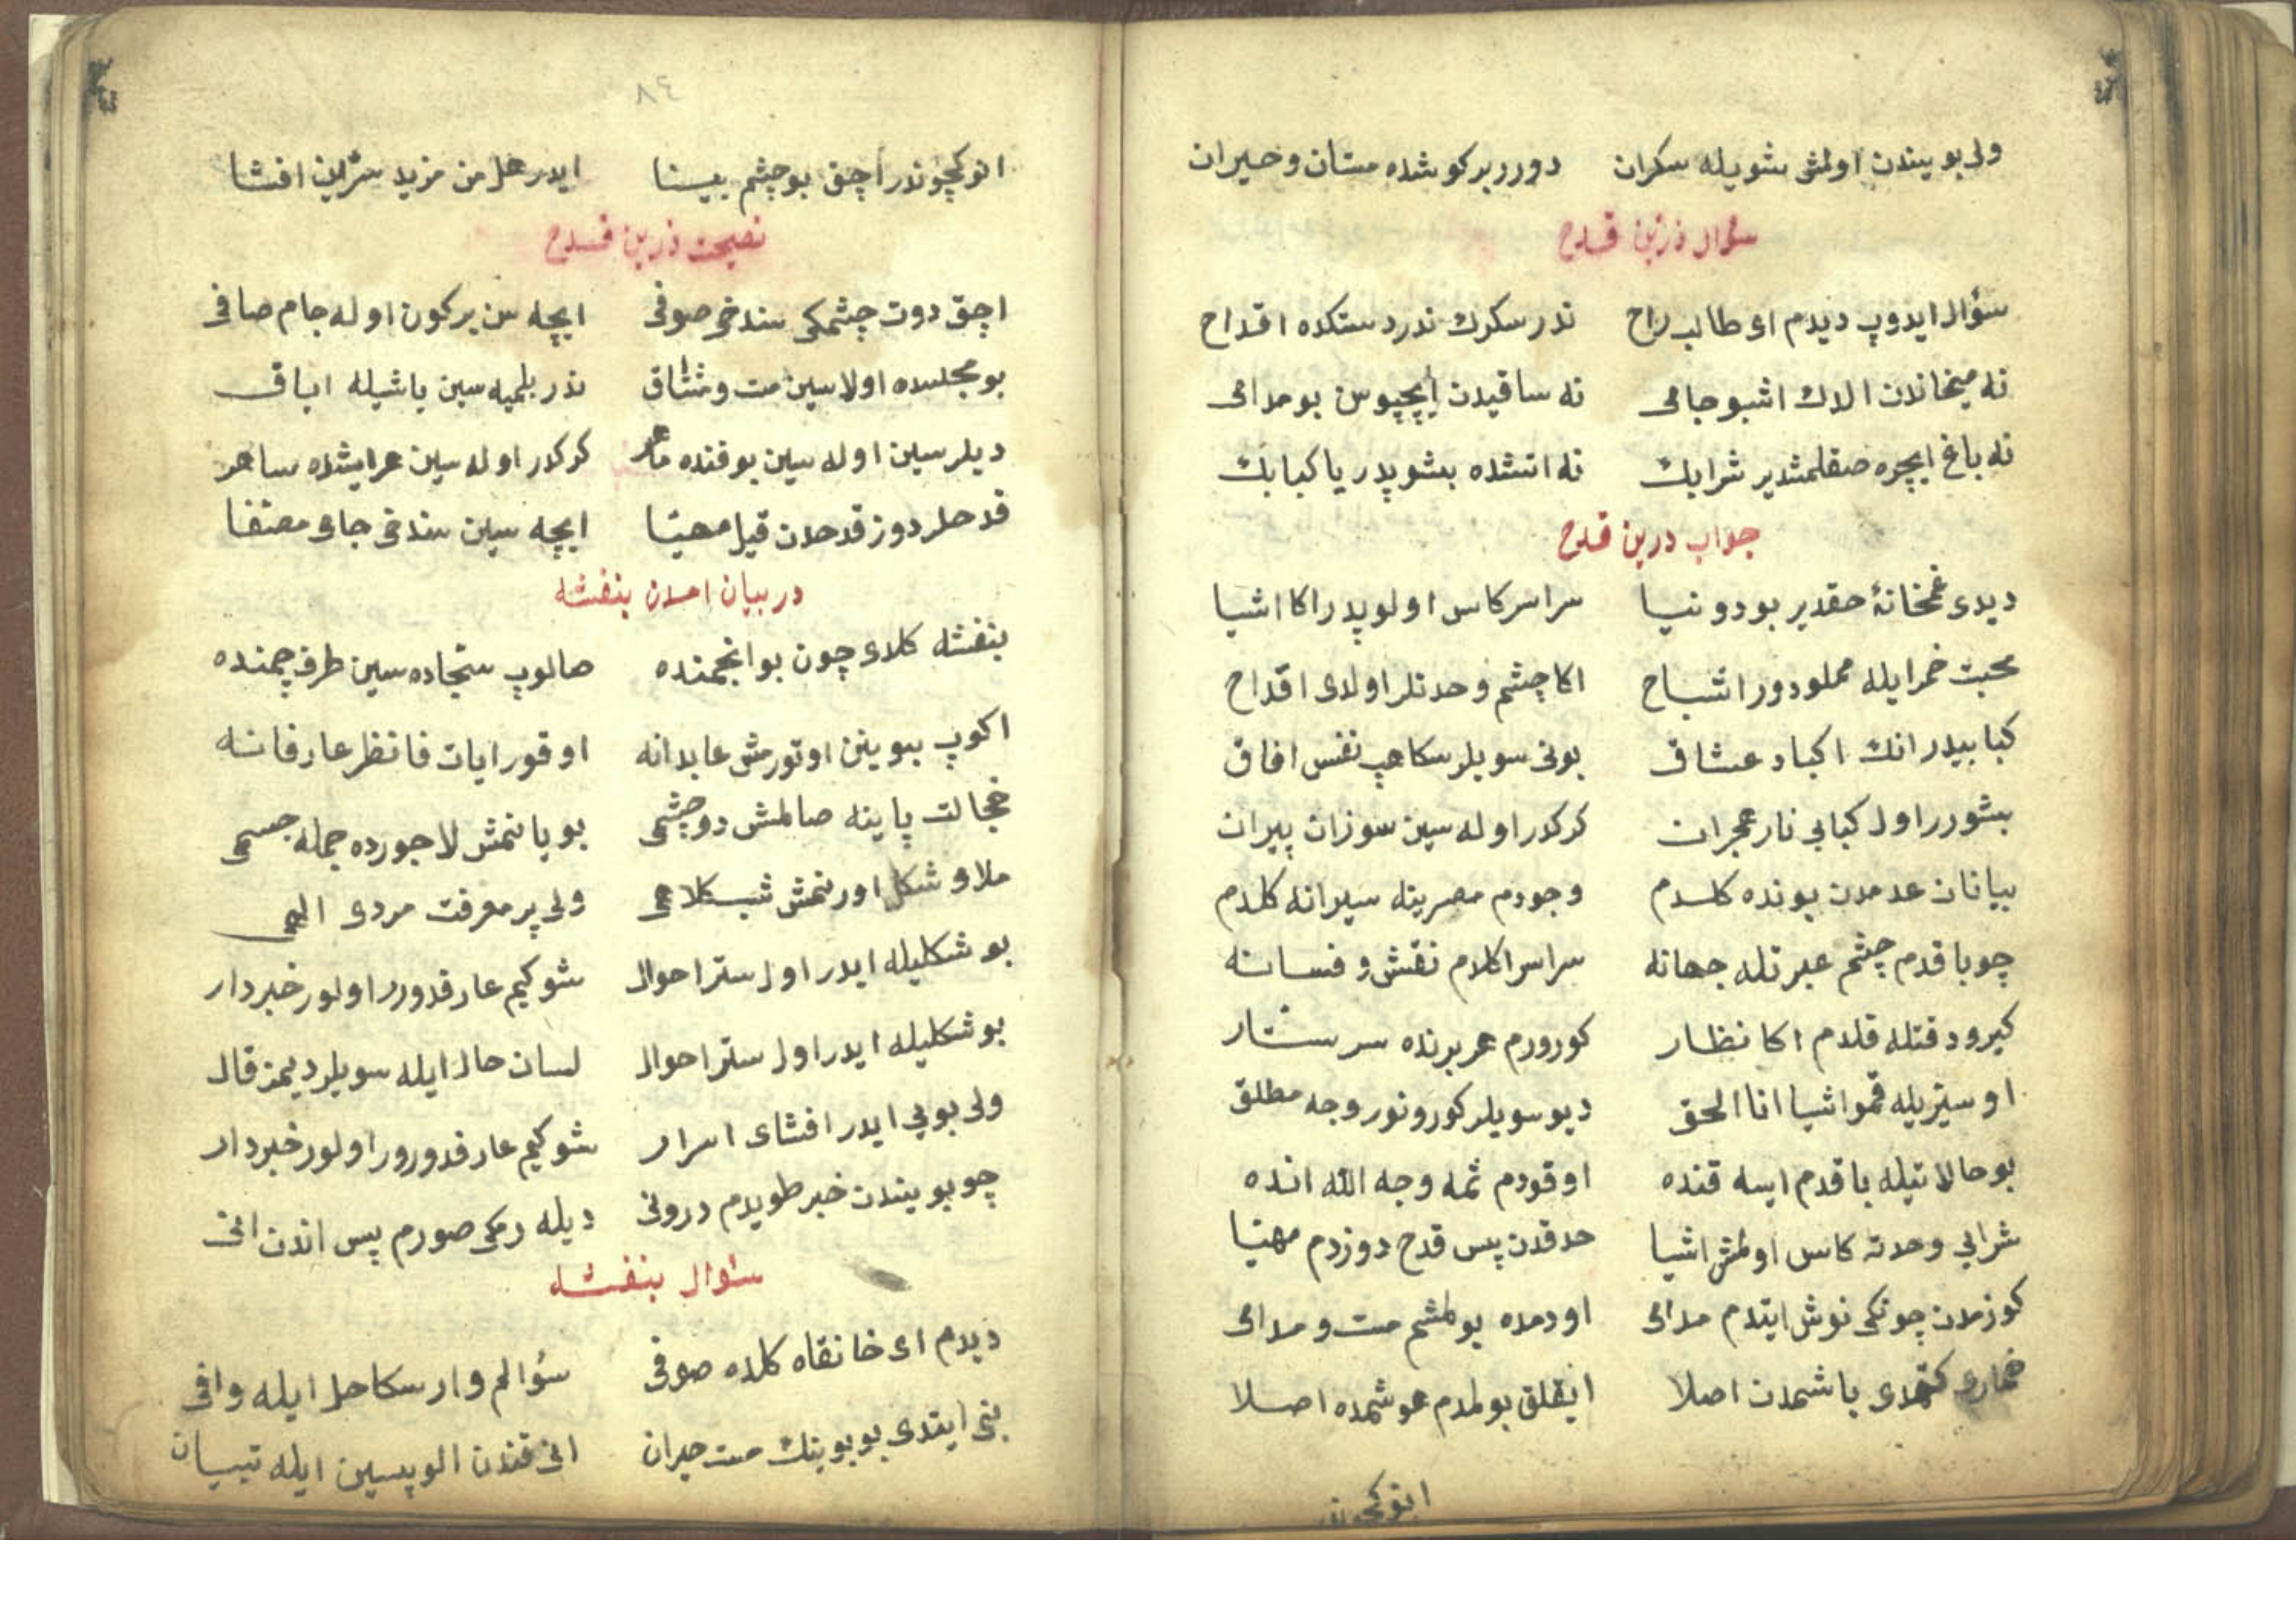 ولی بویندن اولمش شویله سکران دورر بر کوشده مستان و حیران
سؤال زرین قدح
سؤال ایدوپ دیدم ای طالب راح ندر سکرك ندر دستکده اقداح
نه میخانه‌دن الدك اشبو جامی نه ساقیدن ایچپوس بو مدامی
نه باغ ایچره صقلمشدیر شرابك نه اتشده بشوپدر یا کبابك
جواب درین قدح
دیدی خمخانۀ حقدیر بو دونیا سراسر کاس اولوپدر اکا اشیا
محبت خمرایله مملودور اشباح اکا چشم وحدتلر اولدی اقداح
کبابیدر انك اکباد عشاق بونی سویلر سکا هپ نفس افاق
بشورر اول کبابی نار هجران کرکدر اوله سین سوزان پیران
بیانان عدمدن بونده کلدم وجودم مصرینه سیرانه کلدم
چو باقدم چشم عبرتله جهانه سراسر اکلدم نقش و فسانه
کیرو دقتله قلدم اکا نظار کورورم هر برنده سر ستار
اوسیریله قمو اشیا انا الحق دیو سویلر کورونور وجه مطلق
بو حالاتیله باقدم ایسه قنده اوقودم ثمه وجه الله انده
شرابی وحدته کاس اولمش اشیا حدقدن پس قدح دوزدم مهیا
کوزمدن چونکی نوش ایتدم مدامی اودمده بولمشم مست و مدامی
خماری کتمدی باشمدن اصلا ایقلق بولمدم هوشمده اصلا
انوکچوندر
٨٤
انوکچوندر أچق بو چشم بینا ایدر هل من مزید سرین افشا
نصیحت زرین قدح
اچق دوت چشمکی سندخی صوفی ایچه سن بر کون اوله جام صافی
بو مجلسده اولاسین مست و مشتاق ندر بلمیه سین یاشیله ایاق
دیلرسین اوله سین بو فنده ماهر کرکدر اوله سین هر ایشده ساهر
قدحلر دوز قدحدن قیل مهیا ایچه سین سندخی جای مصفا
در بیان امدن بنفشه
بنفشه کلدی چون بو انجمنده صالوپ سجاده سین طرف چمنده
اکوپ بیوینن اوتورمش عابدانه اوقور ایات فانظر عارفانه
خجالت پاینه صالمش دو چشمی بویانمش لاجورده جمله جسمی
ملاو شکل اورنمش شبکلاهی ولی پر معرفت مردی الهی
بو شکلیله ایدر اول ستر احوال شوکیم عارفدورر اولور خبردار
بو شکلیله ایدر اول ستر احوال لسان حال ایله سویلر دیمز قال
ولی بویی ایدر افشای اسرار شوکیم عارفدورور اولور خبردار
چو بویندن خبر طویدم درونی دیله رمکی صورم پس اندن انی
سؤال بنفشه
دیدم ای خانقاه کلده صوفی سؤالم وار سکا حل ایله وافی
بنی ایتدی بو بوینك مست حیران انی قندن الوپسین ایله تبیان